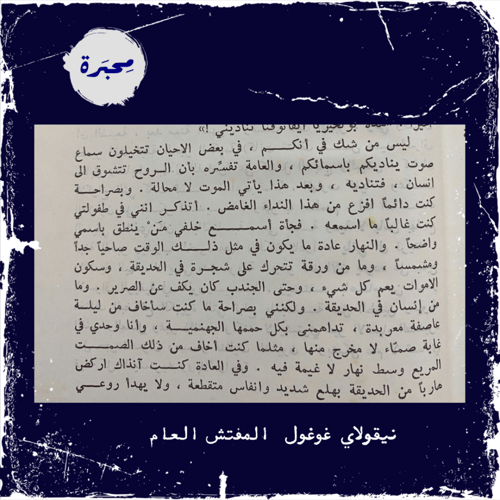 مِحبَرَة
بولخيريا ايفانوفنا تناديني !»
ليس من شك في انكم ، في بعض الاحيان تتخيلون سماع
صوت يناديكم باسمائكم ، والعامة تفسّره بان الروح تتشوق الى
انسان ، فتناديه ، وبعد هذا يأتي الموت لا محالة . وبصراحة
كنت دائماً افزع من هذا النداء الغامض . اتذكر انني في طفولتي
كنت غالباً ما اسمعه . فجأة اسمع خلفي مَن ينطق باسمي
واضحاً . والنهار عادة ما يكون في مثل ذلك الوقت صاحياً جداً
ومشمساً ، وما من ورقة تتحرك على شجرة في الحديقة ، وسكون
الاموات يعم كل شيء ، وحتى الجندب كان يكف عن الصرير . وما
من إنسان في الحديقة . ولكنني بصراحة ما كنت ساخاف من ليلة
عاصفة معربدة ، تداهمني بكل حممها الجهنمية ، وأنا وحدي في
غابة صمّاء لا مخرج منها ، مثلما كنت أخاف من ذلك الصمت
المريع وسط نهار لا غيمة فيه . وفي العادة كنت آنذاك اركض
هارباً من الحديقة بهلع شديد وانفاس متقطعة ، ولا يهدا روعي
نيقولاي غوغول المفتش العام